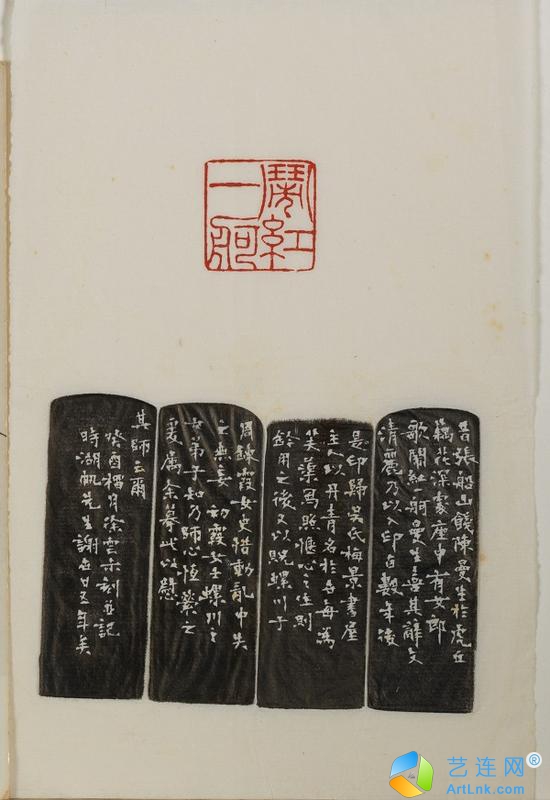 鬧紅
一舸
昔張船山餞陳曼生於虎丘
藕花深處座中有女郎
歌鬧紅一舸曼生喜其辭文
清麗乃以入印百數年後
是印歸吳氏梅景書屋
主人以丹青名於世每為
芙渠寫照愜心之作則
鈐用之後又以貺螺川于
周鍊霞女史動亂中失
之無妄 初霞女士螺川之
女弟子知乃師心恆縈之
爰屬余摹此以慰
其師云爾
癸酉榴月徐雲尗刻並記
時湖帆先生謝世廿五年矣
艺连网®
ArtLnk.com